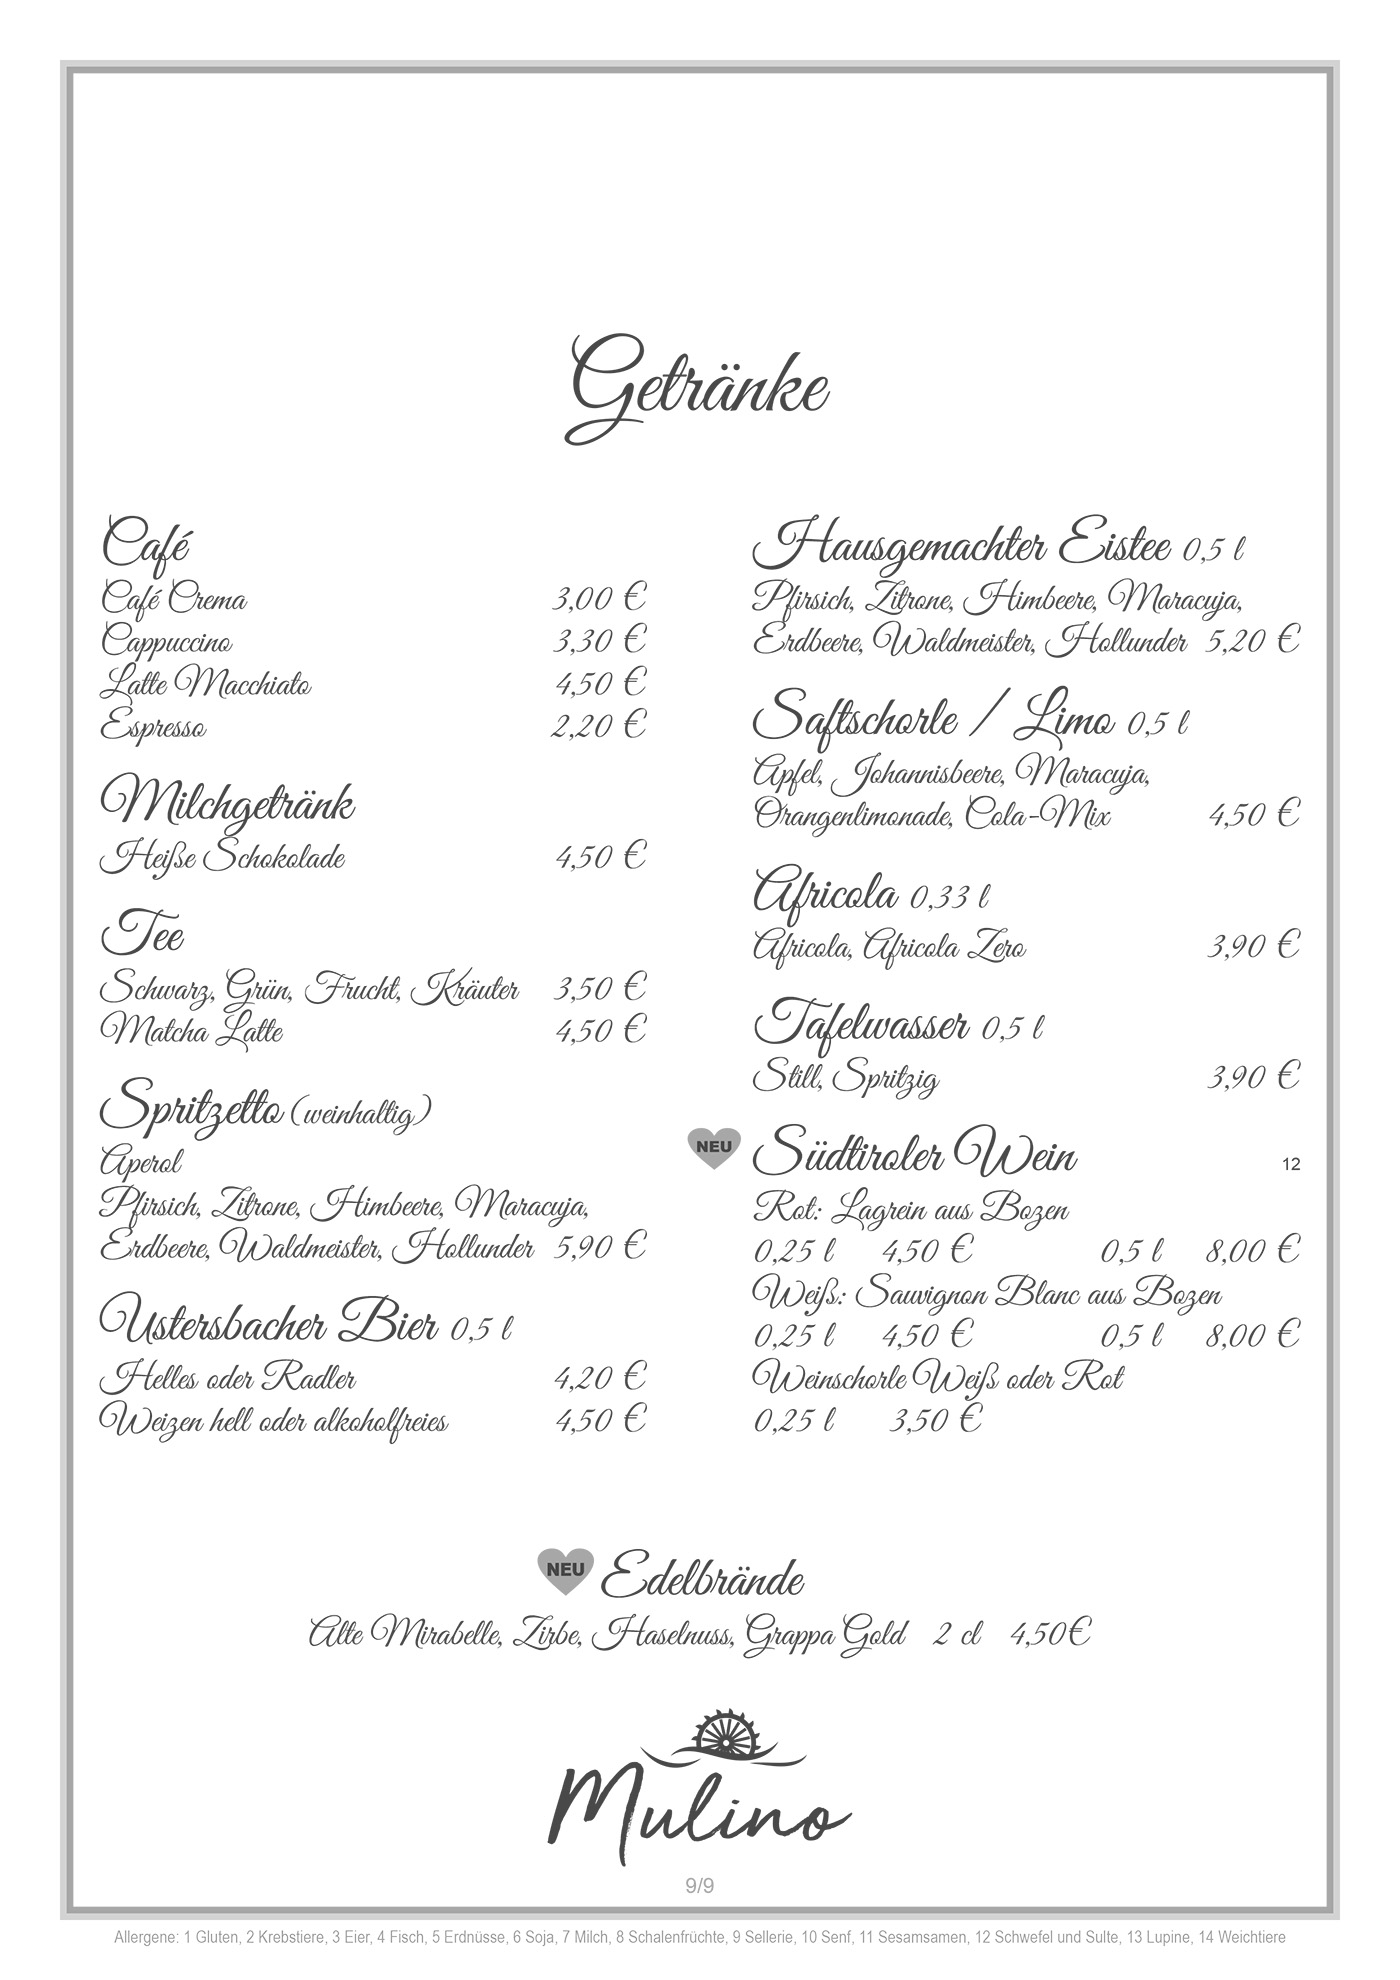 Getränke
Café
Café Crema 3,00 €
Cappuccino 3,30 €
Latte Macchiato 4,50 €
Espresso 2,20 €
Milchgetränk
Heiße Schokolade 4,50 €
Tee
Schwarz, Grün, Frucht, Kräuter 3,50 €
Matcha Latte 4,50 €
Spritzetto (weinhaltig)
Aperol
Pfirsich, Zitrone, Himbeere, Maracuja,
Erdbeere, Waldmeister, Hollunder 5,90 €
Ustersbacher Bier 0,5 l
Helles oder Radler 4,20 €
Weizen hell oder alkoholfreies 4,50 €
Hausgemachter Eistee 0,5 l
Pfirsich, Zitrone, Himbeere, Maracuja,
Erdbeere, Waldmeister, Hollunder 5,20 €
Saftschorle / Limo 0,5 l
Apfel, Johannisbeere, Maracuja,
Orangenlimonade, Cola-Mix 4,50 €
Africola 0,33 l
Africola, Africola Zero 3,90 €
Tafelwasser 0,5 l
Still, Spritzig 3,90 €
NEU Südtiroler Wein 12
Rot: Lagrein aus Bozen
0,25 l 4,50 € 0,5 l 8,00 €
Weiß: Sauvignon Blanc aus Bozen
0,25 l 4,50 € 0,5 l 8,00 €
Weinschorle Weiß oder Rot
0,25 l 3,50 €
NEU Edelbrände
Alte Mirabelle, Zirbe, Haselnuss, Grappa Gold 2 cl 4,50€
Mulino
9/9
Allergene: 1 Gluten, 2 Krebstiere, 3 Eier, 4 Fisch, 5 Erdnüsse, 6 Soja, 7 Milch, 8 Schalenfrüchte, 9 Sellerie, 10 Senf, 11 Sesamsamen, 12 Schwefel und Sulte, 13 Lupine, 14 Weichtiere